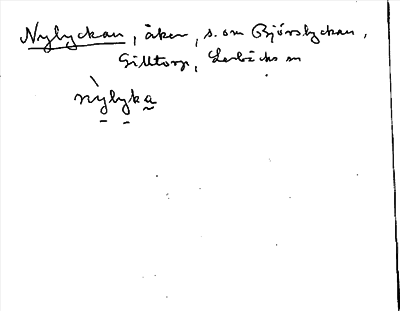 Nylyckan, åker, s. om Björslyckan,
Gilltorp, Lerbäcks m
nỳlyka